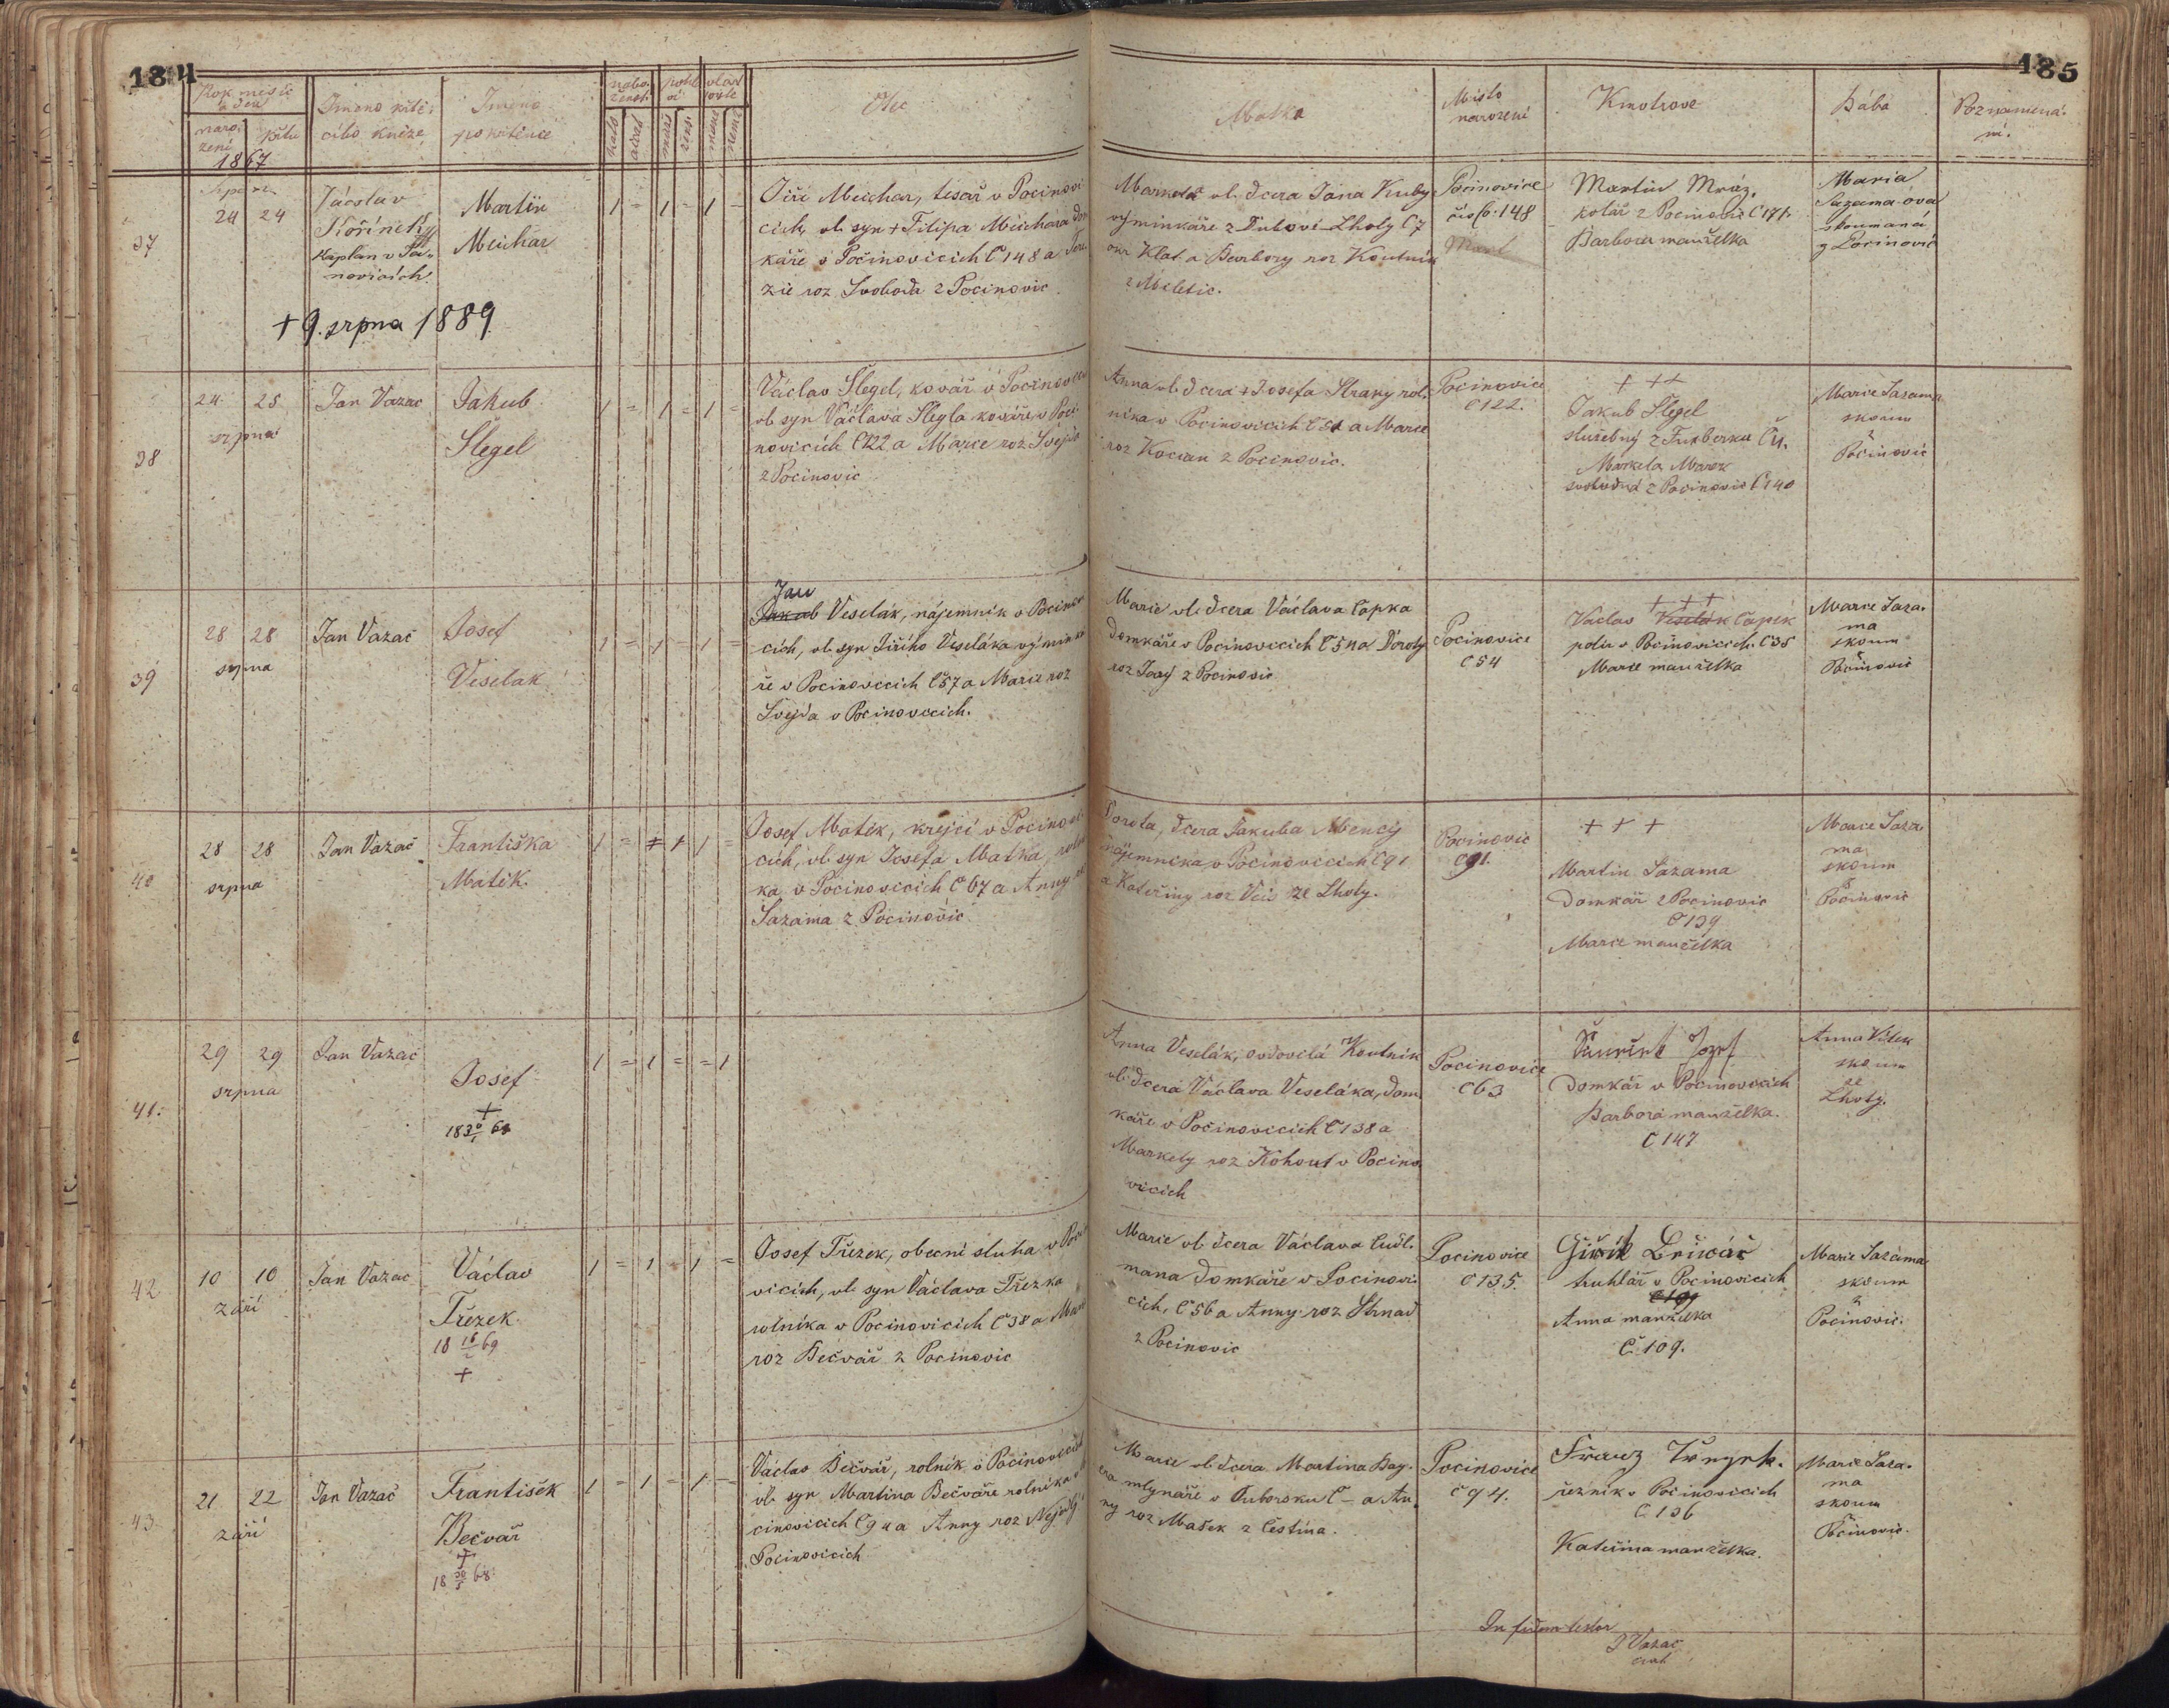 184
185
Rok měsíc
a den
naro-
zení
křtu
1867
Jmeno křtí-
cího kněze
Jméno
pokřtěnce
nábo-
ženst.
pohl
ví
katol
akatol
mužs
žens
manž
nemz
Otec
Matka
Místo
narození
Kmotrove
Bába
Poznamená-
ní.
37
Srpen
24 24
Václav
Kořínek
Kaplan v Po-
novicích
Martin
Meichar
1 - 1 - 1 -
Jiří Meichar, tesař v Pocinovi-
cích, vl. syn + Filipa Meichara dom
káře v Počinovicích Č 148 a Tere
zie roz Svoboda z Pocinovic.
Markéta vl. dcera Jana Kuby
výminkáře z Dubové Lhoty Č 7
okr Klat. a Barbory roz Koutník
z Miletic.
Pocinovice
číslo 148
Martin Mráz.
kolář z Pocinovic Č 171.
Barbora manželka
Maria
Sazama-ova
skoumaná
z Pocinovic
+ 9. srpna 1889
38
24. 25
srpna
Jan Vazac
Jakub
Šlegel
1 = 1 = 1 =
Václav Šlegel, kovář v Pocinovic
vl. syn Václava Šlegla kováře v Poci
novicích Č 122 a Marie roz Svejda
z Pocinovic
Anna vl. dcera + Josefa Straky rol.
níka v Pocinovicích Č 51 a Marie
roz Kocian z Pocinovic.
Pocinovice
Č 122.
+ + +
Jakub Šlegel
služebný z
Markéta Marek
svobodná z Pocinovic Č 140
Marie Sazama
skoum
z
Počinovic
39
28 28
srpna
Jan Vazač
Josef
Veselak
1 = 1 - 1 =
Jan
Jakub Veselák, nájemník v Pocinov
cích, vl. syn Jiřího Veseláka výminká
ře v Pocinovicích Č 57 a Marie roz
Svejda v Pocinovicích.
Marie vl. dcera Václava Čapka
domkáře v Pocinovicích Č 54 a Doroty
roz Tarý z Pocinovic
Pocinovice
Č 54
+ + +
Václav Veselák Čapek
poln v Počinovicích Č 35
Marie manželka
Marie Saza-
ma
skoum
z
Počinovic
40
28 28
srpna
Jan Vazač
Františka
Matěk
1 = + 1 1 =
Josef Matěk, krejčí v Pocinovi
cích, vl. syn Josefa Matka, rolní
ka v Pocinovicích Č 67 a Anny roz
Sazama z Pocinovic
Dorota, dcera Jakuba Mency
nájemníka v Pocinovicích Č 91
a Kateřiny roz Veis ze Lhoty.
Pocinovic
Č 91.
+ + +
Martin Sazama
domkář z Pocinovic
Č 139
Marie manželka
Marie Saza-
ma
skoum
z
Pocinovic
41.
29 29
srpna
Jan Vazac
Josef
+
18 30/1 68
1 = 1 = = 1
Anna Veselák, ovdovělá Koutník
vl. dcera Václava Veseláka, dom
káře v Počinovicích Č 138 a
Markety roz Kohout v Pocino
vicích
Pocinovice
Č 63
Jozef
domkář v Pocinovicích
Barbora manželka.
Č 147
Anna Vítek
skoum
ze
Lhoty.
42
10 10
září
Jan Vazac
Václav
Třezek
18 16/2 69
+
1 = 1 - 1 =
Josef Třezek, obecní sluha v Poci
vicích, vl. syn Václava Třezka
rolníka v Pocinovicích Č 38 a Marie
roz Bečvář z Pocinovic
Marie vl. dcera Václava Cudl-
mana domkáře v Pocinovi-
cích, Č 56 a Anny roz Strnad
z Pocinovic
Pocinovice
Č 135.
truhlář v Pocinovicích
Č 109
Anna manželka
Č 109.
Marie Sazama
skoum
z
Pocinovic.
43
21 22
září
Jan Vazač
František
Bečvář
+
18 30/5 68
1 = 1 - 1 =
Václav Bečvář, rolník v Počinovicích
vl. syn Martina Bečváře rolníka v Po
cinovicích Č 94 a Anny roz Nejedlý
Pocinovicích
Marie vl. dcera Martina Bay-
era mlynáře v Puborsku Č - a An-
ny roz Mašek z Čestína.
Pocinovice
Č 94.
Franz
řezník v Pocinovicích
Č 136
Kateřina manželka.
Marie Saza-
ma
skoum
z
Pocinovic.
In fidem testor
J Vazač